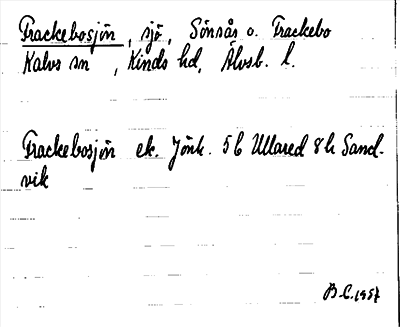 Frackebosjön, sjö, Sönsås o. Frackebo
Kalvs sn, Kinds hd, Älvsb. l.
Frackebosjön ek. Jönk. 5b Ullared 8h Sand-
vik
B.C. 1957